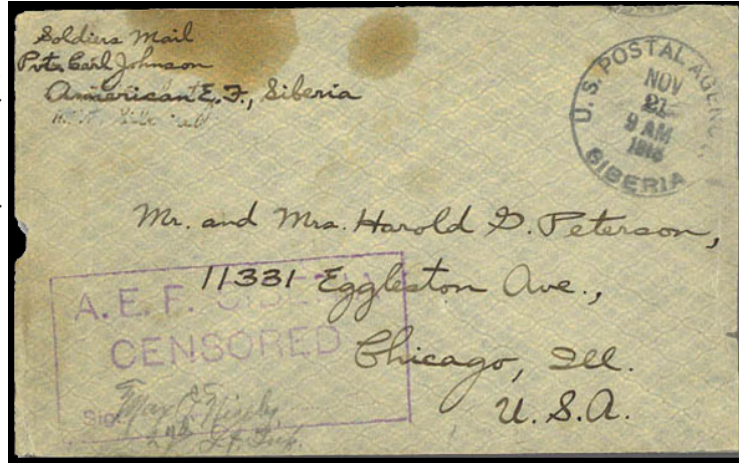 Soldiers Mail
Pvt. Carl Johnson
American E. F., Siberia
U. S. POSTAL AGENCY
SIBERIA
NOV
21
9 AM
1918
Mr. and Mrs. Harold G. Peterson,
11331 Eggleston Ave.,
Chicago, Ill.
U. S. A.
A. E. F. SIBERIA
CENSORED